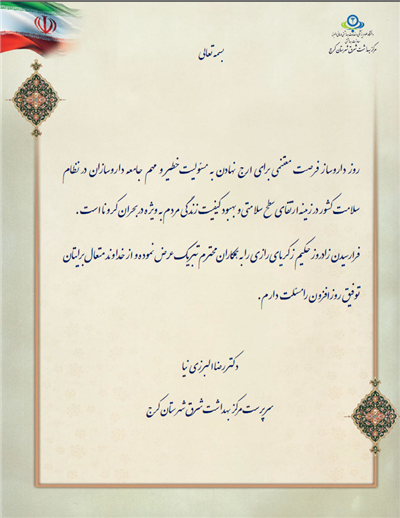 مرکز بهداشت شرق شهرستان کرج
بسمه تعالی
روز داروساز فرصت مغتنمی برای ارج نهادن به مسئولیت خطیر و مهم جامعه داروسازان در نظام
سلامت کشور در زمینه ارتقای سطح سلامتی و بهبود کیفیت زندگی مردم به ویژه در بحران کرونا است.
فرارسیدن زادروز حکیم زکریای رازی را به همکاران محترم تبریک عرض نموده و از خداوند متعال برایتان
توفیق روزافزون را مسئلت دارم.
دکتر رضا البرزی نیا
سرپرست مرکز بهداشت شرق شهرستان کرج